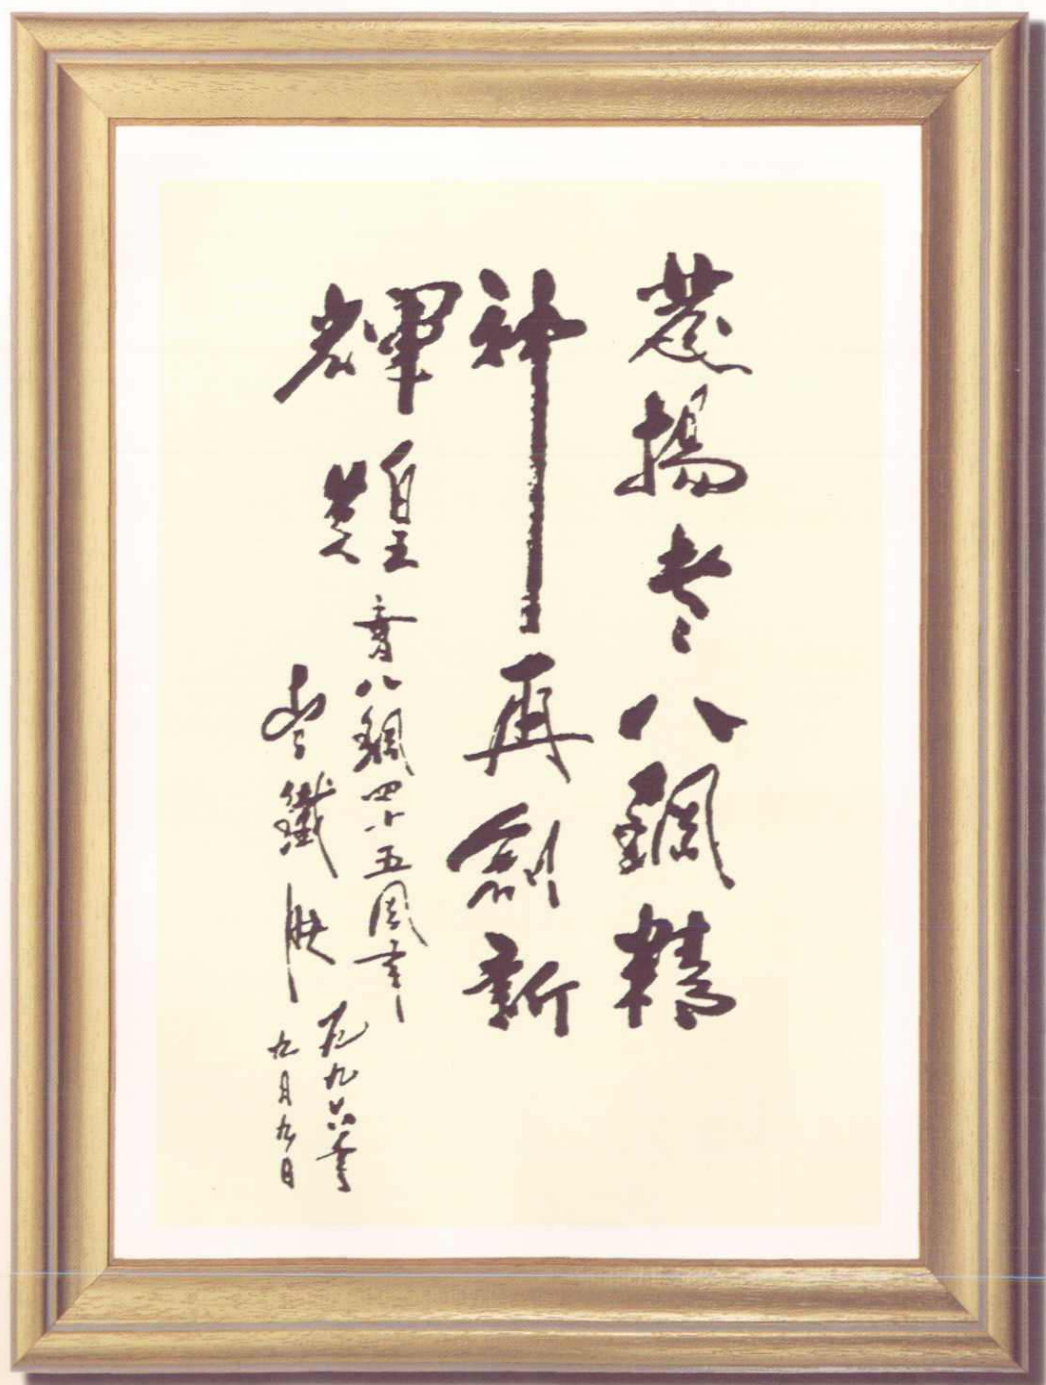 發揚老八鋼精
神再創新
輝煌 賀八鋼四十五周年
李鐵映
一九九六年
九月九日